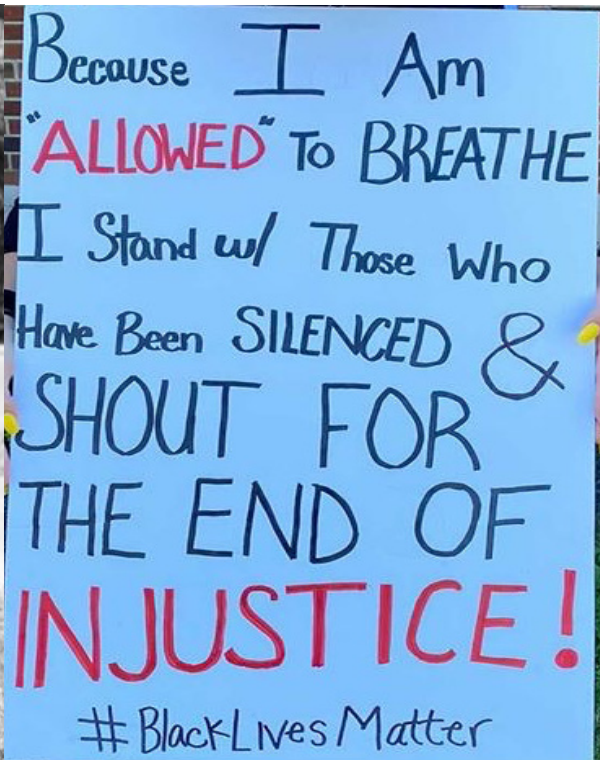 Because I Am
"ALLOWED" To BREATHE
I Stand w/ Those Who
Have Been SILENCED &
SHOUT FOR
THE END OF
INJUSTICE!
#BlackLivesMatter